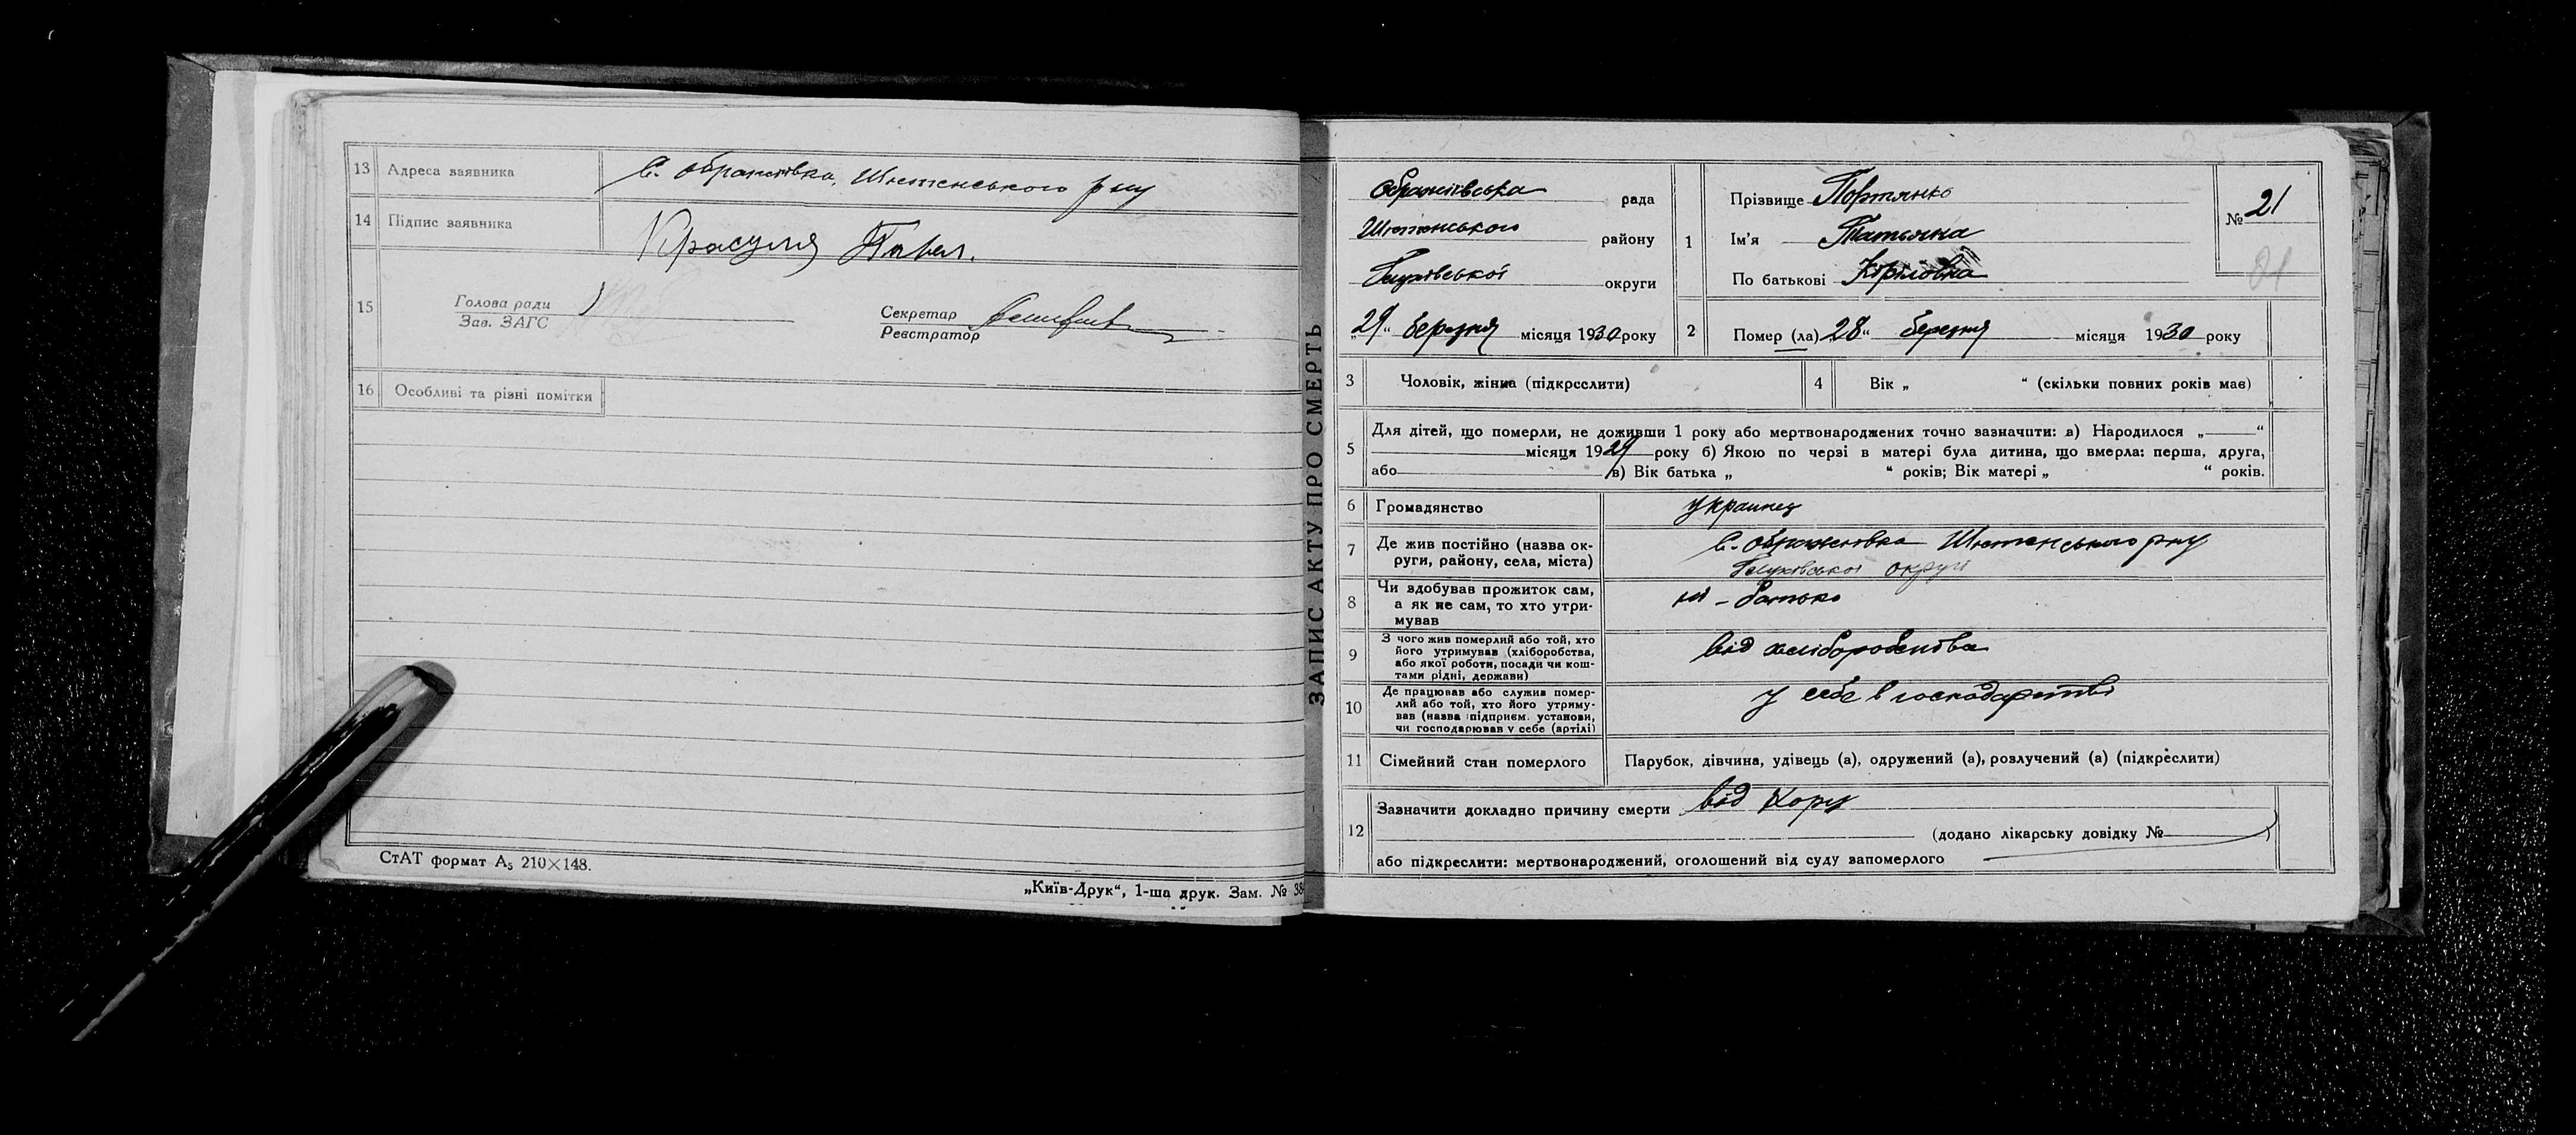 13 Адреса заявника С. Ображіївка, Шостенського р-ну
14 Підпис заявника Красуля Павел.
15 Голова ради Зав. ЗАГС
Секретар Реєстратор
16 Особливі та різні помітки
СтАТ формат А₅ 210×148.
„Київ-Друк“, 1-ша друк. Зам. № 38
ЗАПИС АКТУ ПРО СМЕРТЬ
Ображіївська рада
Шостенського району
Глухівської округи
„29“ березня місяця 1930 року
1 Прізвище Портянко
Ім'я Татьяна
По батькові Кіріловна
№ 21
21
2 Помер (ла) 28“ березня місяця 1930 року
3 Чоловік, жінка (підкреслити)
4 Вік „ “ (скільки повних років має)
5 Для дітей, що померли, не доживши 1 року або мертвонароджених точно зазначити: а) Народилося „ “
місяця 1929 року б) Якою по черзі в матері була дитина, що вмерла: перша, друга,
або в) Вік батька „ “ років; Вік матері „ “ років.
6 Громадянство украинец
7 Де жив постійно (назва ок-
руги, району, села, міста)
С. Ображіївка Шостенського р-ну
Глухівської округи
8 Чи здобував прожиток сам,
а як не сам, то хто утри-
мував
ні - батько
9 З чого жив померлий або той, хто
його утримував (хліборобства,
або якої роботи, посади чи кош-
тами рідні, держави)
від хліборобства
10 Де працював або служив помер-
лий або той, хто його утриму-
вав (назва підприєм. установи,
чи господарював у себе (артілі)
у себе в господарстві
11 Сімейний стан померлого Парубок, дівчина, удівець (а), одружений (а), розлучений (а) (підкреслити)
12 Зазначити докладно причину смерти від кору
(додано лікарську довідку № )
або підкреслити: мертвонароджений, оголошений від суду запомерлого